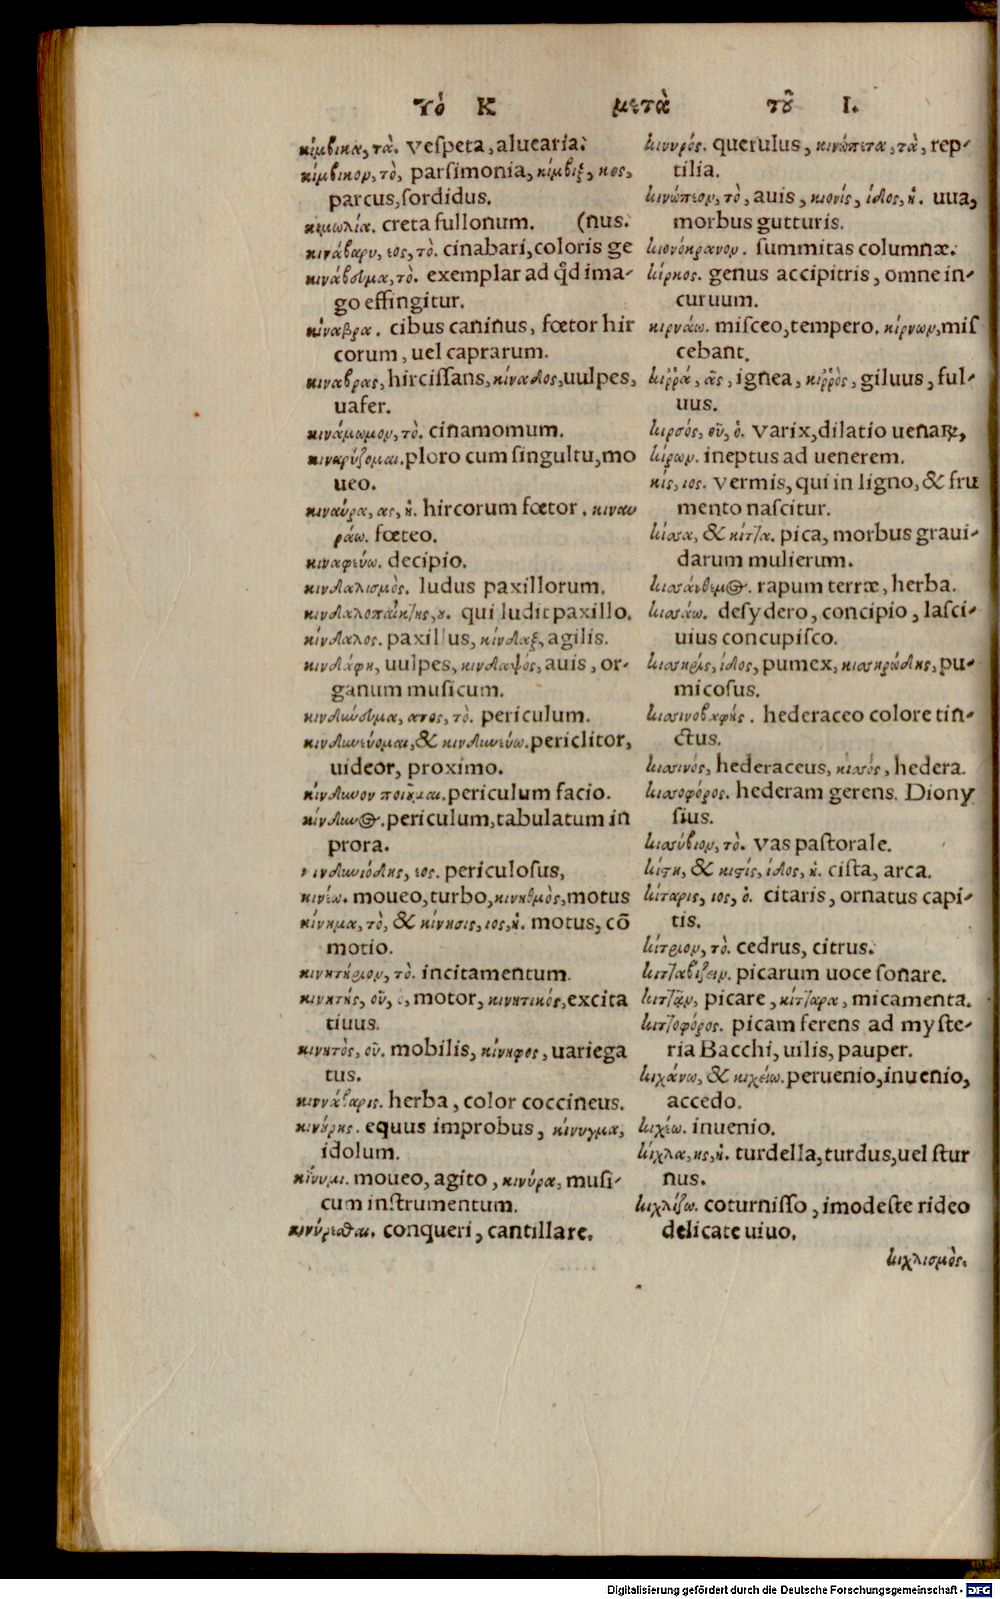 Τὸ Κ μετὰ τοῦ Ι.
κίμβικα, τὰ. vespeta, aluearia.
κίμβικον, τὸ, parsimonia, κίμβιξ, κος,
parcus, sordidus.
κιμωλία. creta fullonum. (nus.
κινάβαρυ, ιος, τὸ. cinabari, coloris ge
κινάβευμα, τὸ. exemplar ad qd ima-
go effingitur.
κίναβρα. cibus caninus, fœtor hir
corum, uel caprarum.
κιναβρας, hircissans, κίναδος, uulpes,
uafer.
κινάμωμον, τὸ. cinamomum.
κιναρύζομαι. ploro cum singultu, mo
ueo.
κιναύρα, ας, ἡ. hircorum fœtor. κιναυ
ράω. fœteo.
κιναφεύω. decipio.
κινδαλισμὸς. ludus paxillorum.
κινδαλοπαίκτης, ου. qui ludit paxillo.
κίνδαλος. paxillus, κίνδαξ, agilis.
κινδάφη, uulpes, κινδαψός, auis, or-
ganum musicum.
κινδύνευμα, ατος, τὸ. periculum.
κινδυνεύομαι, & κινδυνεύω. periclitor,
uideor, proximo.
κίνδυνον ποιοῦμαι. periculum facio.
κίνδυνος. periculum, tabulatum in
prora.
κινδυνώδης, εος. periculosus,
κινέω. moueo, turbo, κινηθμὸς, motus
κίνημα, τὸ, & κίνησις, ιος, ἡ. motus, cõ
motio.
κινητήριον, τὸ. incitamentum.
κινητής, οῦ, ὁ, motor, κινητικός, excita
tiuus.
κινητὸς, οῦ. mobilis, κίνηφος, uariega
tus.
κιννάβαρις. herba, color coccineus.
κινύρης. equus improbus, κίνυγμα,
idolum.
κίνυμι. moueo, agito, κινύρα, musi-
cum instrumentum.
κινύρεσθαι. conqueri, cantillare.
κινυρός. querulus, κινώπετα, τὰ, rep-
tilia.
κινώπιον, τὸ, auis, κιονίς, ίδος, ἡ. uua,
morbus gutturis.
κιονόκρανον. summitas columnæ.
κίρκος. genus accipitris, omne in-
curuum.
κιρνάω. misceo, tempero. κίρνων, mis
cebant.
κιῤῥά, ᾶς, ignea, κιῤῥὸς, giluus, ful-
uus.
κιρσός, οῦ, ὁ. varix, dilatio uenaꝝ,
κίρων. ineptus ad uenerem.
κίς, ιος. vermis, qui in ligno, & fru
mento nascitur.
κίσσα, & κίτ]α. pica, morbus graui-
darum mulierum.
κισσάνθεμος. rapum terræ, herba.
κισσάω. desydero, concipio, lasci-
uius concupisco.
κισσηρὶς, ίδος, pumex, κισσηρώδης, pu-
micosus.
κισσινοβαφής. hederaceo colore tin-
ctus.
κισσινός, hederaceus, κισσός, hedera.
κισσοφόρος. hederam gerens. Diony
sius.
κισσύβιον, τὸ. vas pastorale.
κίστη, & κιστίς, ίδος, ἡ. cista, arca.
κίταρις, ιος, ὁ. citaris, ornatus capi-
tis.
κίτριον, τὸ. cedrus, citrus.
κιτ]αβίζειν. picarum uoce sonare.
κιτ]ᾶν, picare, κίτ]αρα, micamenta.
κιτ]οφόρος. picam ferens ad myste-
ria Bacchi, uilis, pauper.
κιχάνω, & κιχέιω. peruenio, inuenio,
accedo.
κιχέω. inuenio.
κίχλα, ης, ἡ. turdella, turdus, uel stur
nus.
κιχλίζω. coturnisso, imodeste rideo
delicate uiuo.
κιχλισμὸς.
Digitalisierung gefördert durch die Deutsche Forschungsgemeinschaft - DFG